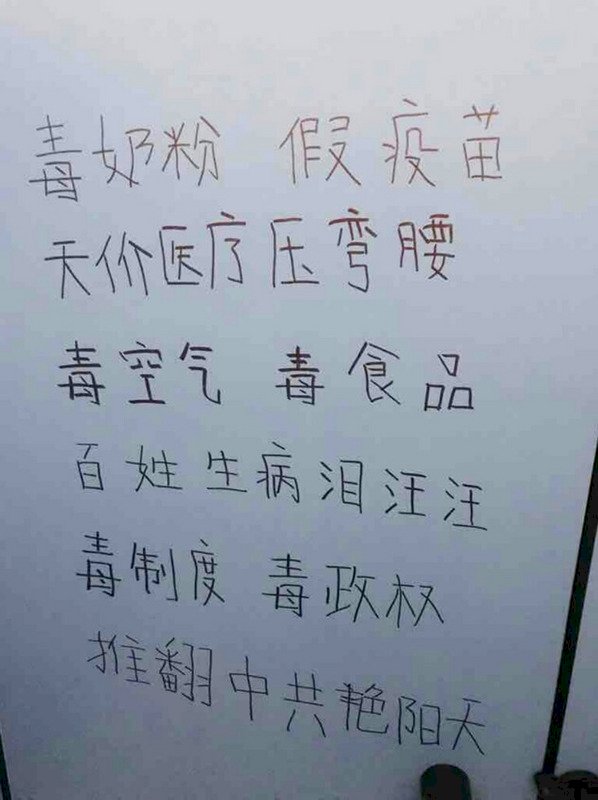 毒奶粉 假疫苗
天价医疗压弯腰
毒空气 毒食品
百姓生病泪汪汪
毒制度 毒政权
推翻中共艳阳天